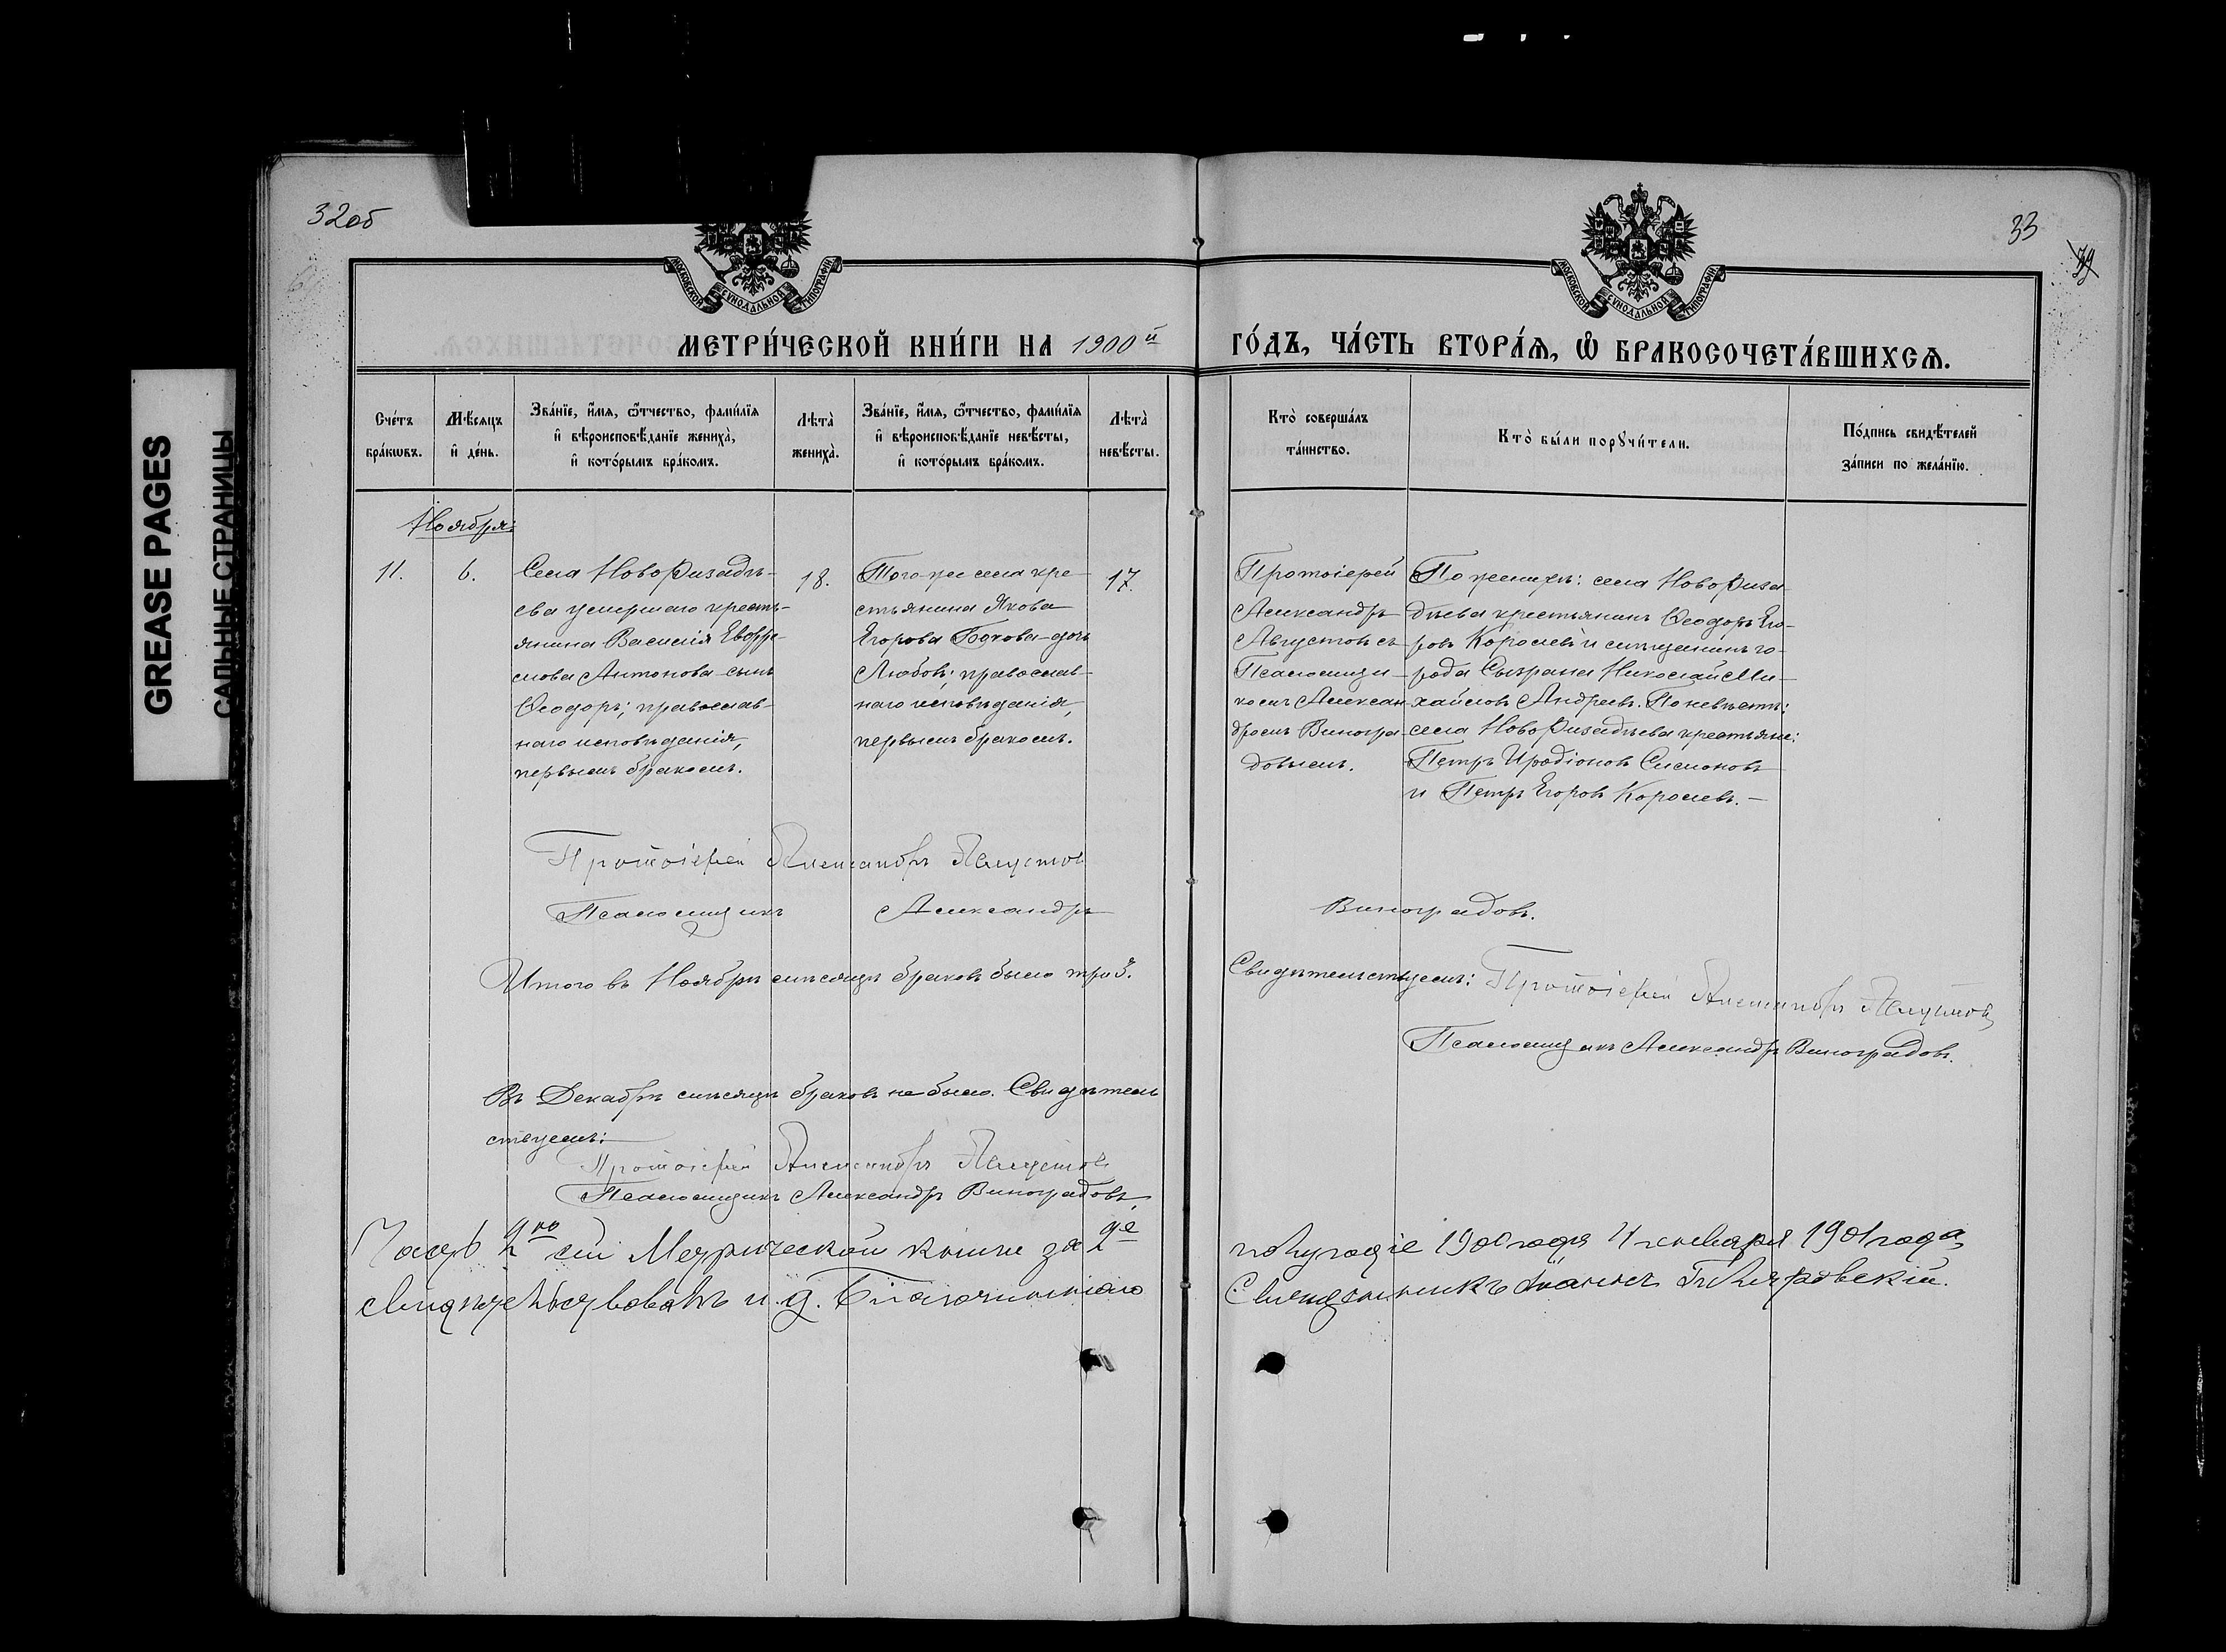 32об
33
79
GREASE PAGES
САЛЬНЫЕ СТРАНИЦЫ
МОСКОВСКОЙ СѴНОДАЛЬНОЙ ТИПОГРАФІИ
МОСКОВСКОЙ СѴНОДАЛЬНОЙ ТИПОГРАФІИ
МЕТРИ́ЧЕСКОЙ КНИ́ГИ НА 1900й
ГО́ДЪ, ЧА́СТЬ ВТОРА́Ѧ, Ѡ҆ БРАКОСОЧЕТА́ВШИХСѦ.
Сче́тъ
бра́кѡвъ.
Мѣ́сѧцъ
и҆ де́нь.
Зва́нїе, и҆́мѧ, ѻ҆́тчество, фами́лїѧ
и҆ вѣроисповѣ́данїе жениха̀,
и҆ кото́рымъ бра́комъ.
Лѣта̀
жениха̀.
Зва́нїе, и҆́мѧ, ѻ҆́тчество, фами́лїѧ
и҆ вѣроисповѣ́данїе невѣ́сты,
и҆ кото́рымъ бра́комъ.
Лѣта̀
невѣ́сты.
Кто̀ соверша́лъ
та́инство.
Кто̀ бы́ли порꙋчи́тели.
По́дпись свидѣ́телей
за́писи по жела́нїю.
Ноября:
11.
6.
Села НовоРизадѣ-
ева умершаго кресть-
янина Василія Евфи-
мова Антонова сынъ
Ѳеодоръ; православ-
наго исповѣданія,
первымъ бракомъ.
18.
Того-же села кре-
стьянина Якова
Егорова Бокова-дочь
Любовь; православ-
наго исповѣданія,
первымъ бракомъ.
17.
Протоіерей
Александръ
Августовъ съ
Псаломщи-
комъ Алексан-
дромъ Виногра-
довымъ.
По женихѣ: села НовоРиза-
дѣева крестьянинъ Ѳеодоръ Его-
ровъ Королевъ и мѣщанинъ го-
рода Сызрана Николай Ми-
хайловъ Андреевъ. По невѣстѣ:
села НовоРизадѣева крестьяне:
Петръ Иродіоновъ Симоновъ
и Петръ Егоровъ Королевъ.—
Протоіерей Александръ Августовъ
Псаломщикъ Александръ Виноградовъ.
Итого въ Ноябрѣ мѣсяцѣ браковъ было три 3.
Свидѣтельствуемъ: Протоіерей Александръ Августовъ
Псаломщикъ Александръ Виноградовъ.
Въ Декабрѣ мѣсяцѣ браковъ не было. Свидѣтель
ствуемъ:
Протоіерей Александръ Августовъ
Псаломщикъ Александръ Виноградовъ.
Часть 2ую сей Метрической книги за 2ое полугодіе 1900 года января 1901 года
свидѣтельствовалъ и. д. Благочиннаго Священникъ Іоаннъ